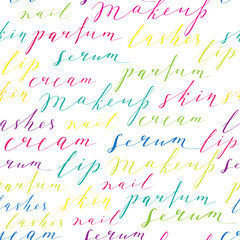 nail lip
skin parfum lashes
cream serum
makeup skin
lashes nail cream
cream serum lip
lip makeup
serum parfum skin
nail
lashes parfum
lashes nail serum